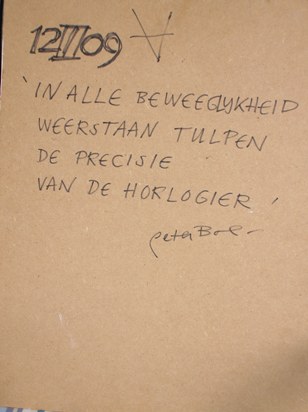 12 III 09
'IN ALLE BEWEEGLYKHEID
WEERSTAAN TULPEN
DE PRECISIE
VAN DE HORLOGIER '
Peter